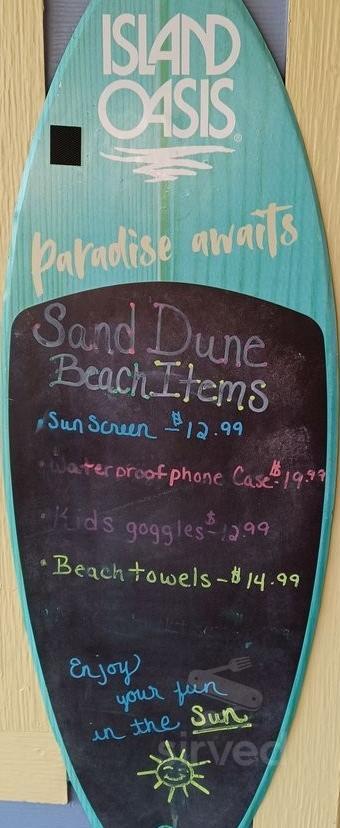 ISLAND
OASIS®
Paradise awaits
Sand Dune
Beach Items
• Sun Screen - $12.99
• Waterproof phone Case - $19.99
• Kids goggles - $12.99
• Beach towels - $14.99
Enjoy
your fun
in the Sun
sirved